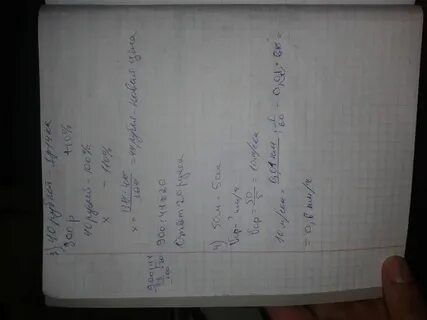 3) 40 рублей – 1 ручка
900 р +10%
40 рублей – 100%
x – 110%
x = 110·40/100 = 44 рубля – новая цена
900:44≈20
Ответ 20 ручек
4) 50м – 5сек
Vср – ? км/ч
Vср = 50/5 = 10м/сек
= 0,6 км/ч